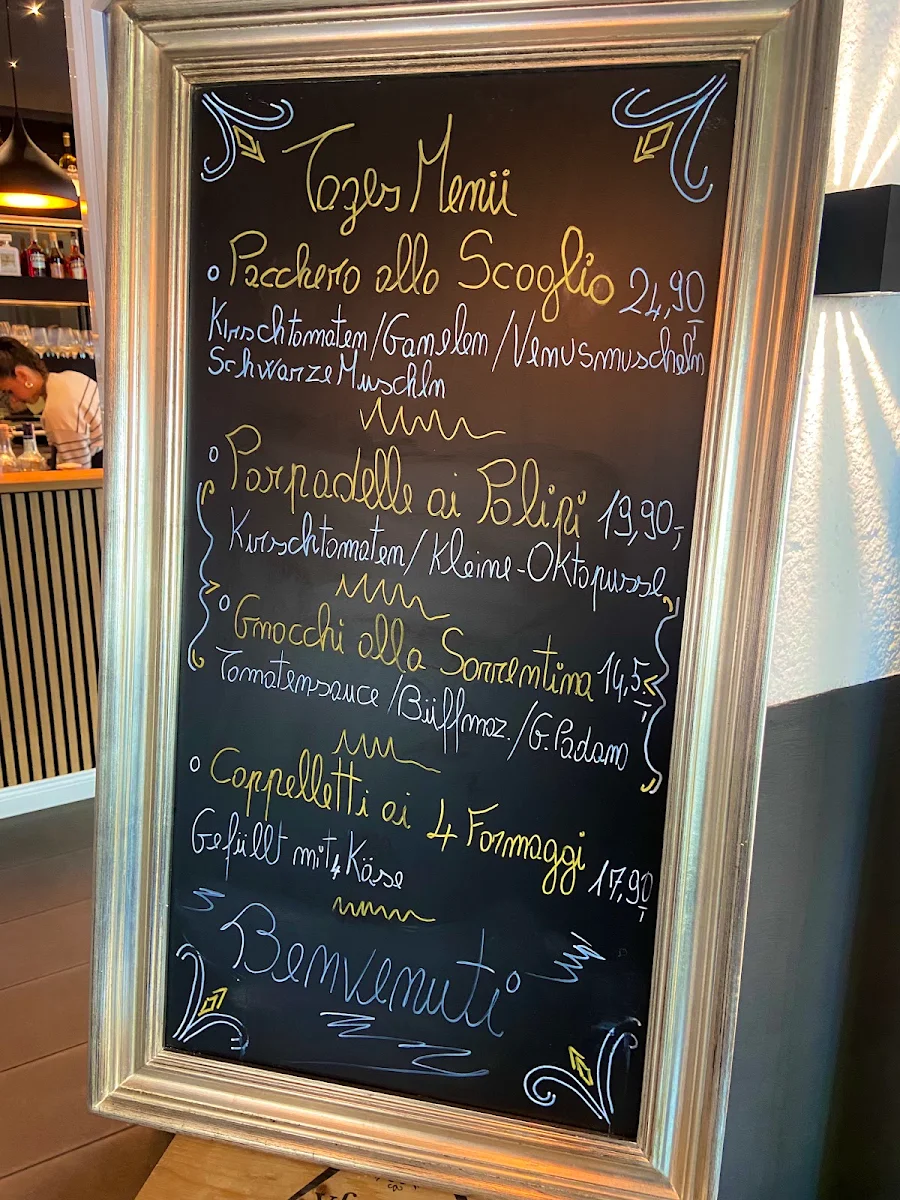 Tages Menü
Pacchero allo Scoglio 24,90
Kirschtomaten/Ganelen/Venusmuscheln
Schwarze Muschln
Parpadelle ai Polipi 19,90,-
Kirschtomaten/Kleine-Oktopusse
Gnocchi alla Sorrentina 14,5
Tomatensauce/Büffmoz./G.Padano
Cappelletti ai 4 Formaggi
17,90
Gefüllt mit 4 Käse
Benvenuti